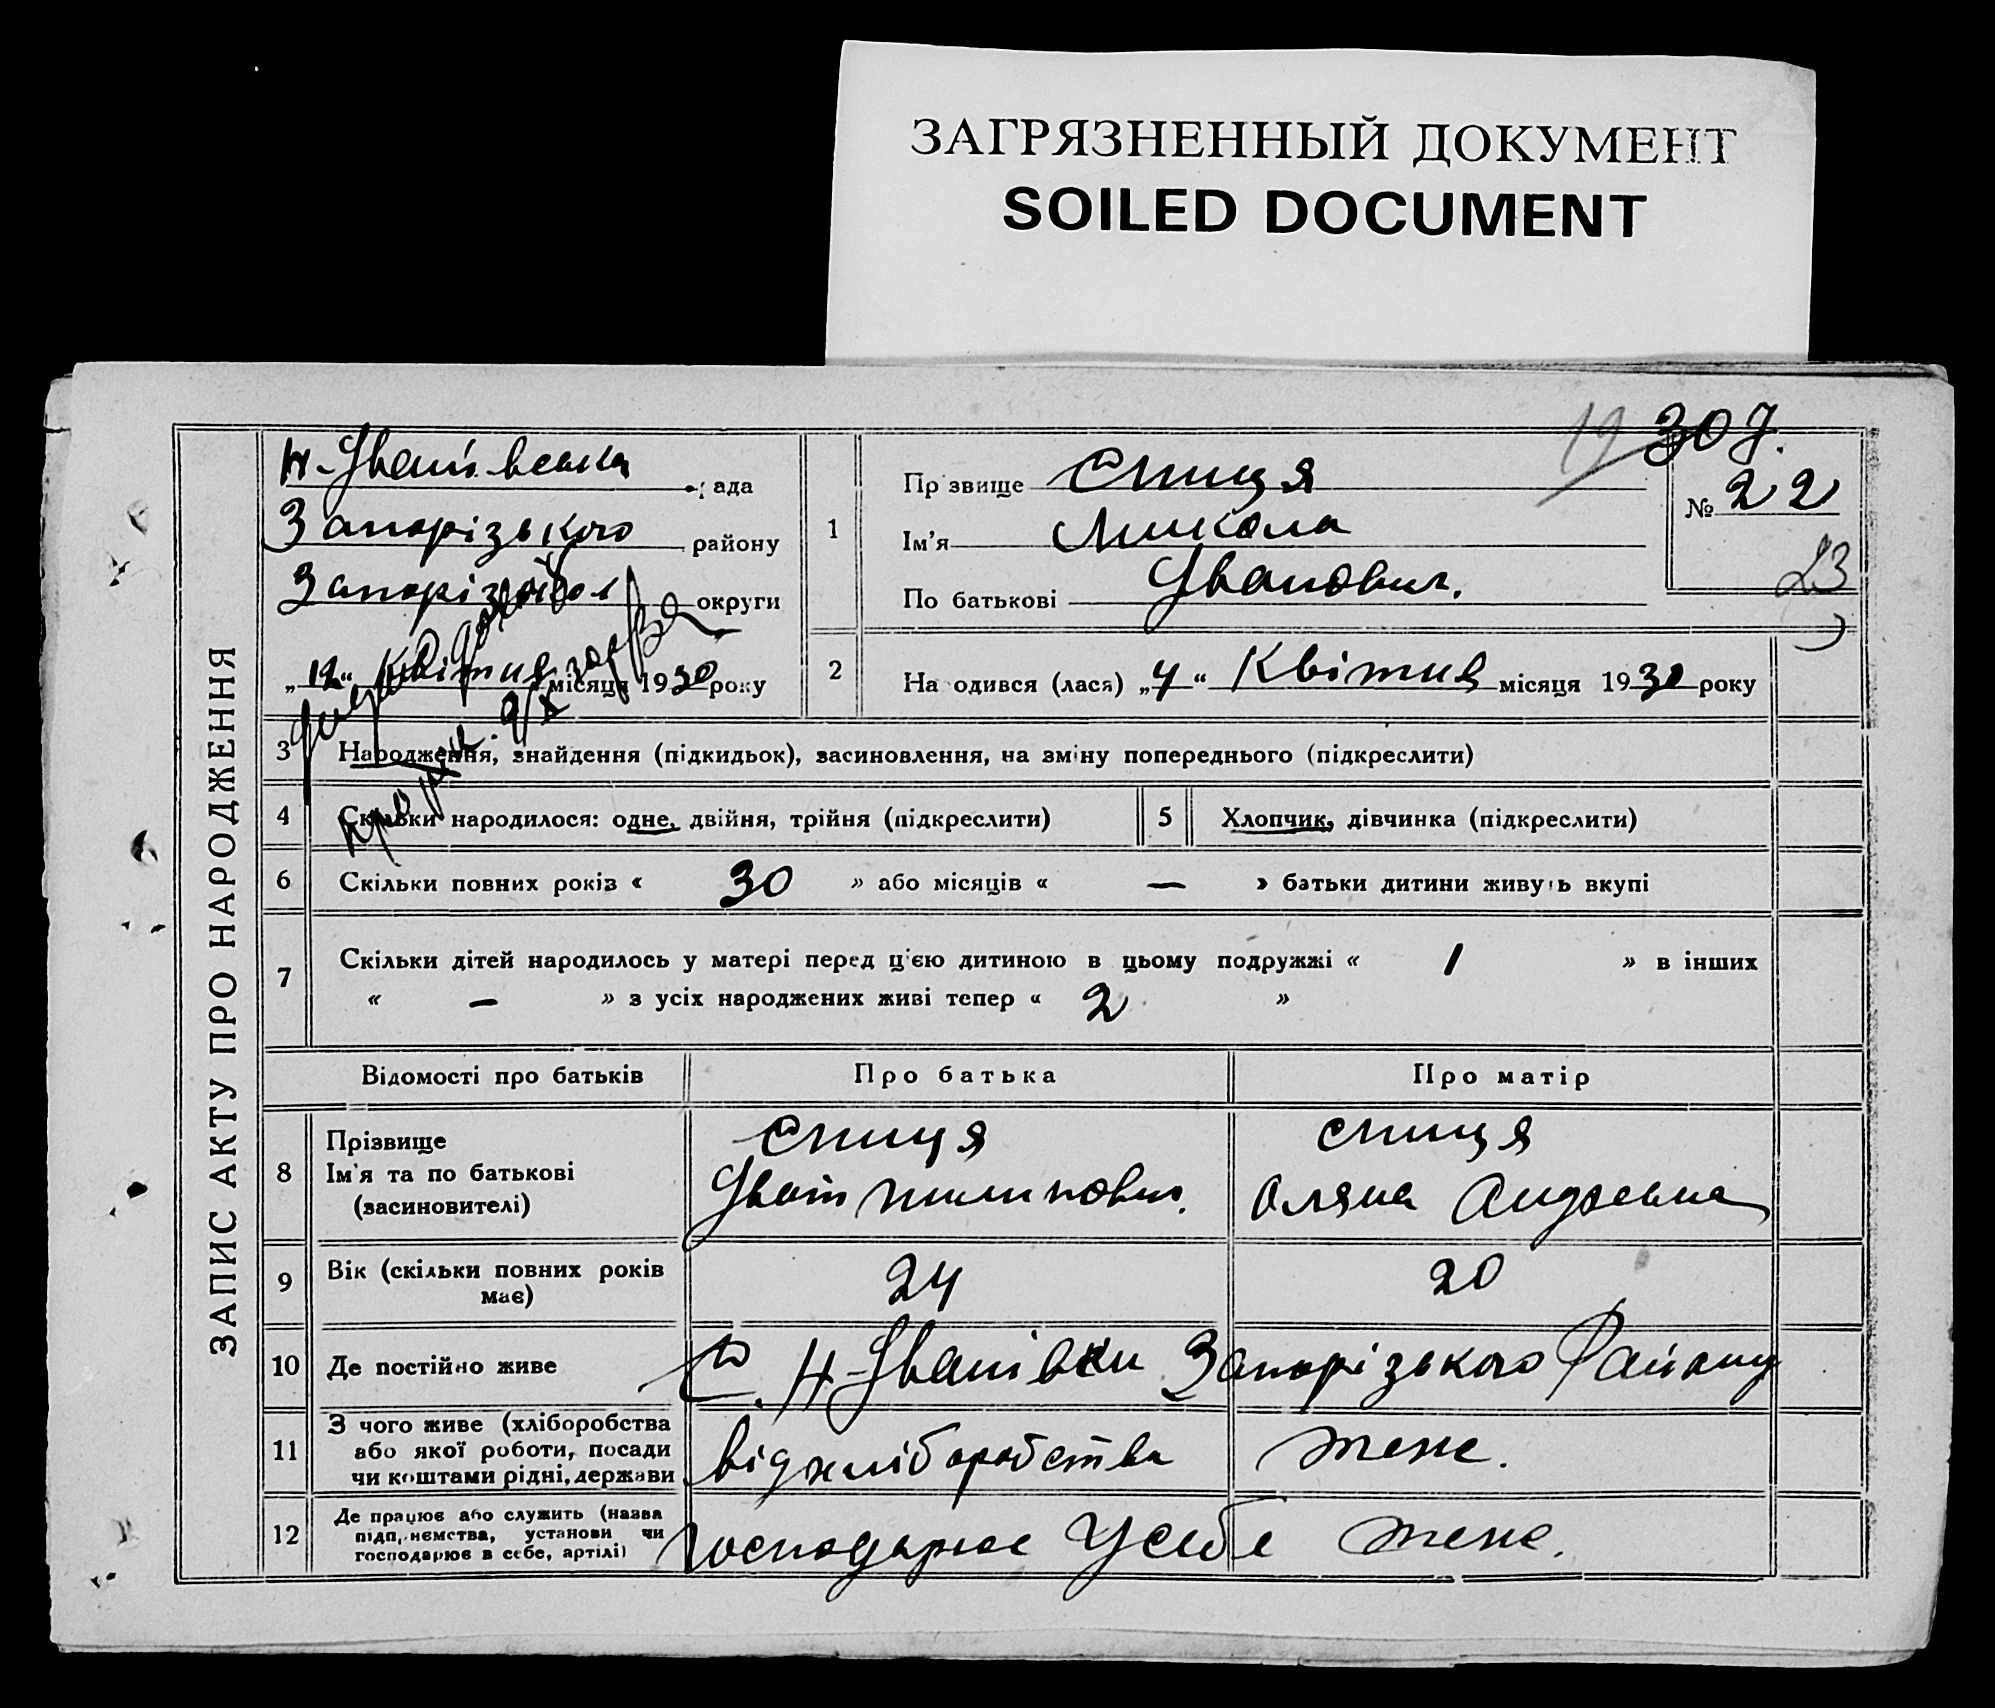 ЗАГРЯЗНЕННЫЙ ДОКУМЕНТ
SOILED DOCUMENT
ЗАПИС АКТУ ПРО НАРОДЖЕННЯ
19 307.
Н-Іванівська рада
Запорізького району
Запорізької округи
„12“ Квітня місяця 1930 року
1
Прізвище Спиця
Ім'я Микола
По батькові Іванович.
№ 22
23
2 Народився (лася) „4“ Квітня місяця 1930 року
3 Народження, знайдення (підкидьок), засиновлення, на зміну попереднього (підкреслити)
4 Скільки народилося: одне, двійня, трійня (підкреслити)
5 Хлопчик, дівчинка (підкреслити)
6 Скільки повних років « 30 » або місяців « — » батьки дитини живуть вкупі
7 Скільки дітей народилось у матері перед ц'єю дитиною в цьому подружжі « 1 » в інших
« — » з усіх народжених живі тепер « 2 »
Відомості про батьків Про батька Про матір
8 Прізвище
Ім'я та по батькові
(засиновителі)
Спиця
Іван Пилипович.
Спиця
Оляна Андреевна
9 Вік (скільки повних років
має)
24 20
10 Де постійно живе
с. Н-Іванівки Запорізького Району
11 З чого живе (хліборобства
або якої роботи, посади
чи коштами рідні, держави
від хліборобства теже.
12 Де працює або служить (назва
підприємства, установи чи
господарює в себе, артілі)
господарює у себе теже.